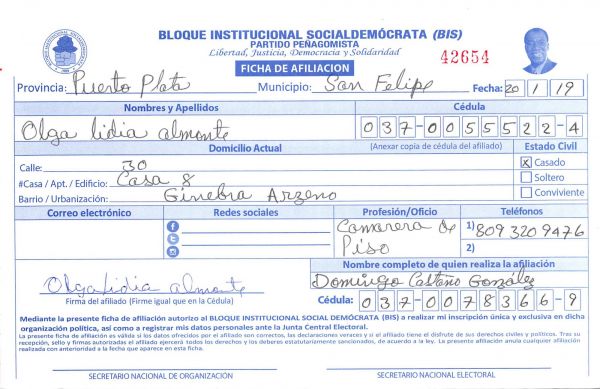 BLOQUE INSTITUCIONAL SOCIALDEMÓCRATA (BIS)
PARTIDO PEÑAGOMISTA
Libertad, Justicia, Democracia y Solidaridad
42654
FICHA DE AFILIACION
Provincia: Puerto Plata Municipio: San Felipe Fecha: 20 / 1 / 19
Nombres y Apellidos Cédula
Olga lidia almonte 037-0055522-4
Domicilio Actual (Anexar copia de cédula del afiliado) Estado Civil
Calle: 30 X Casado
#Casa / Apt. / Edificio: Casa 8 Soltero
Barrio / Urbanización: Ginebra Arzeno Conviviente
Correo electrónico Redes sociales Profesión/Oficio Teléfonos
Camarera de 1) 809 320 9476
Piso 2)
Nombre completo de quien realiza la afiliación
Olga lidia almonte Domingo Castaño González
Firma del afiliado (Firme igual que en la Cédula) Cédula: 037-0078366-9
Mediante la presente ficha de afiliación autorizo al BLOQUE INSTITUCIONAL SOCIAL DEMÓCRATA (BIS) a realizar mi inscripción única y exclusiva en dicha
organización política, así como a registrar mis datos personales ante la Junta Central Electoral.
La presente ficha de afiliación es válida si los datos ofrecidos por el afiliado son correctos, las declaraciones veraces y si el afiliado tiene el disfrute de sus derechos civiles y políticos. Tras su
recepción, sello y firmas autorizadas el afiliado ejercerá todos los derechos y los deberes estatutariamente sancionados, de acuerdo a la ley. La presente afiliación anula cualquier afiliación
realizada con anterioridad a la fecha que aparece en esta ficha.
SECRETARIO NACIONAL DE ORGANIZACIÓN SECRETARIO NACIONAL ELECTORAL